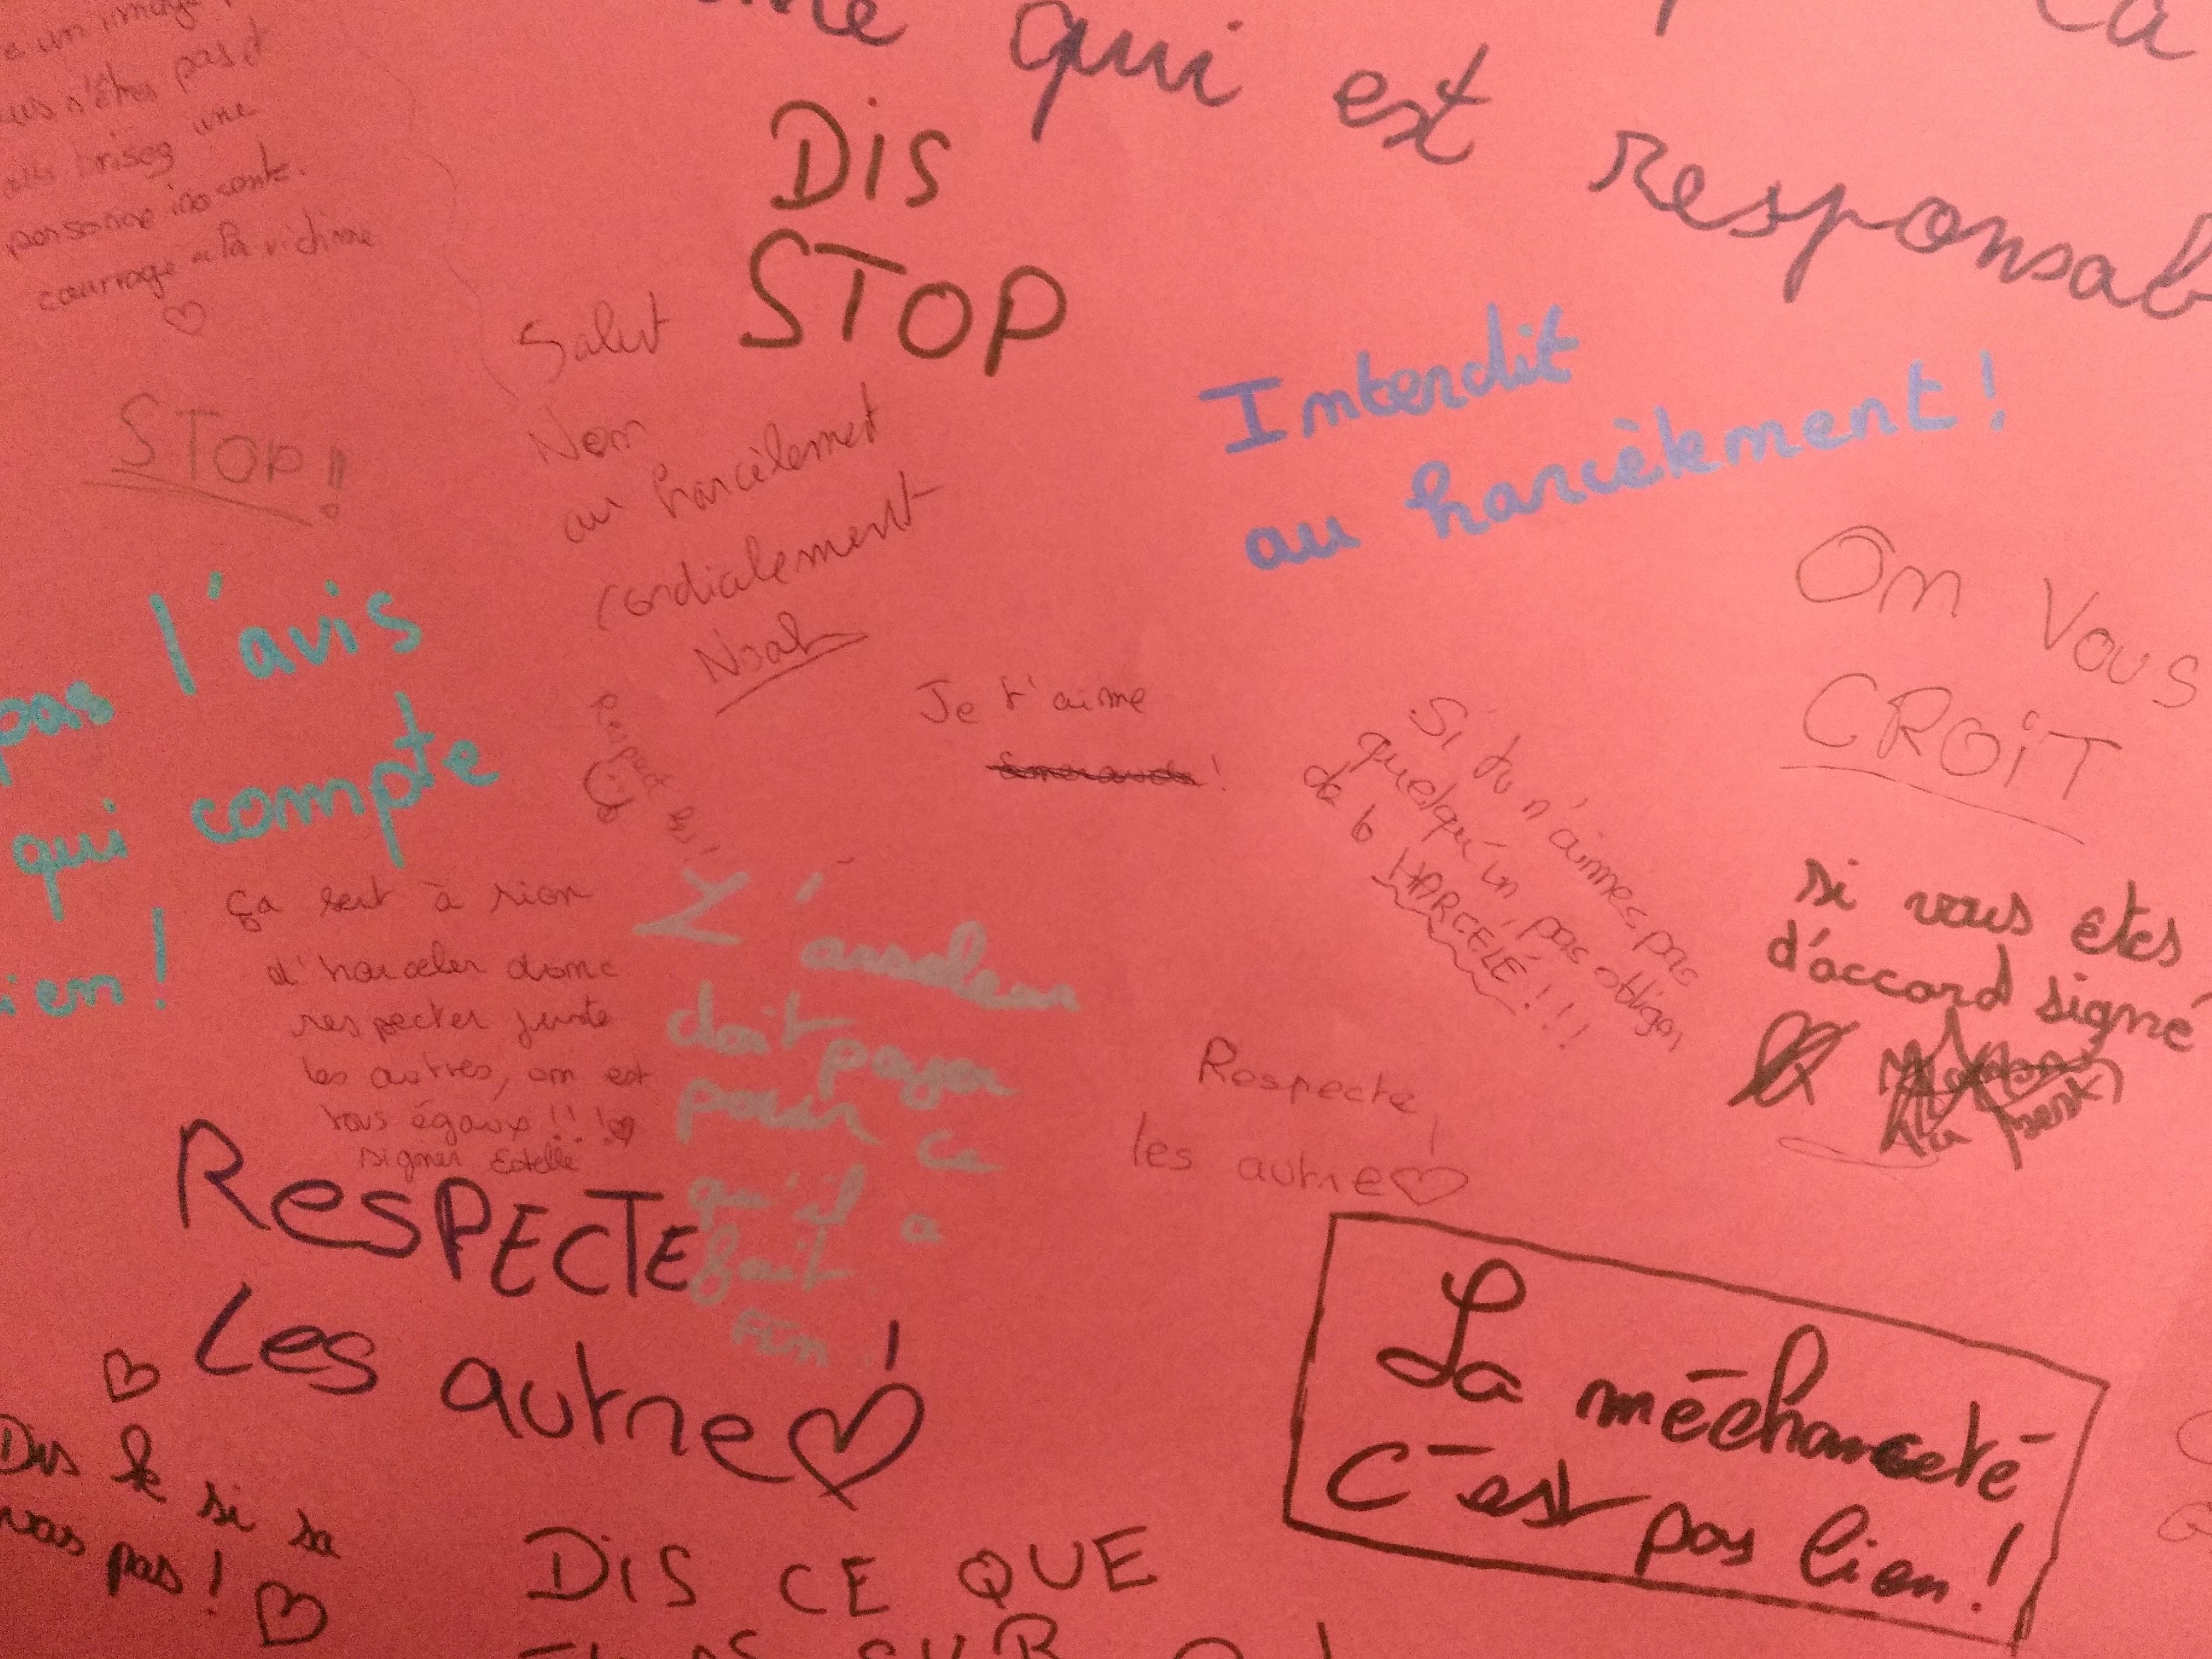 un image
n'êtes pas
brisez une
personne inocente.
courrage a la victime
qui est responsab
DIS
STOP
STOP!
Salut
Non
au harcèlement
cordialement
Noah
Interdit
au harcèlement!
On Vous
CROIT
pas l'avis
qui compte
ien!
Je t'aime
!
Si tu n'aimes pas
quelqu'un, pas obliger
de le HARCELÉ!!!
si vous etes
d'accord signé
ça sert à rien
d'harceler donc
respecter juste
les autres, on est
tous égaux!!!
signer Estelle
L'arseleur
doit payer
pour ce
qu'il a
fait.
FIN!
Respecte
les autre!
RESPECTE
Les autre!
La méchanceté
C'est pas bien!
Dis le si sa
vas pas!
DIS CE QUE
SUR